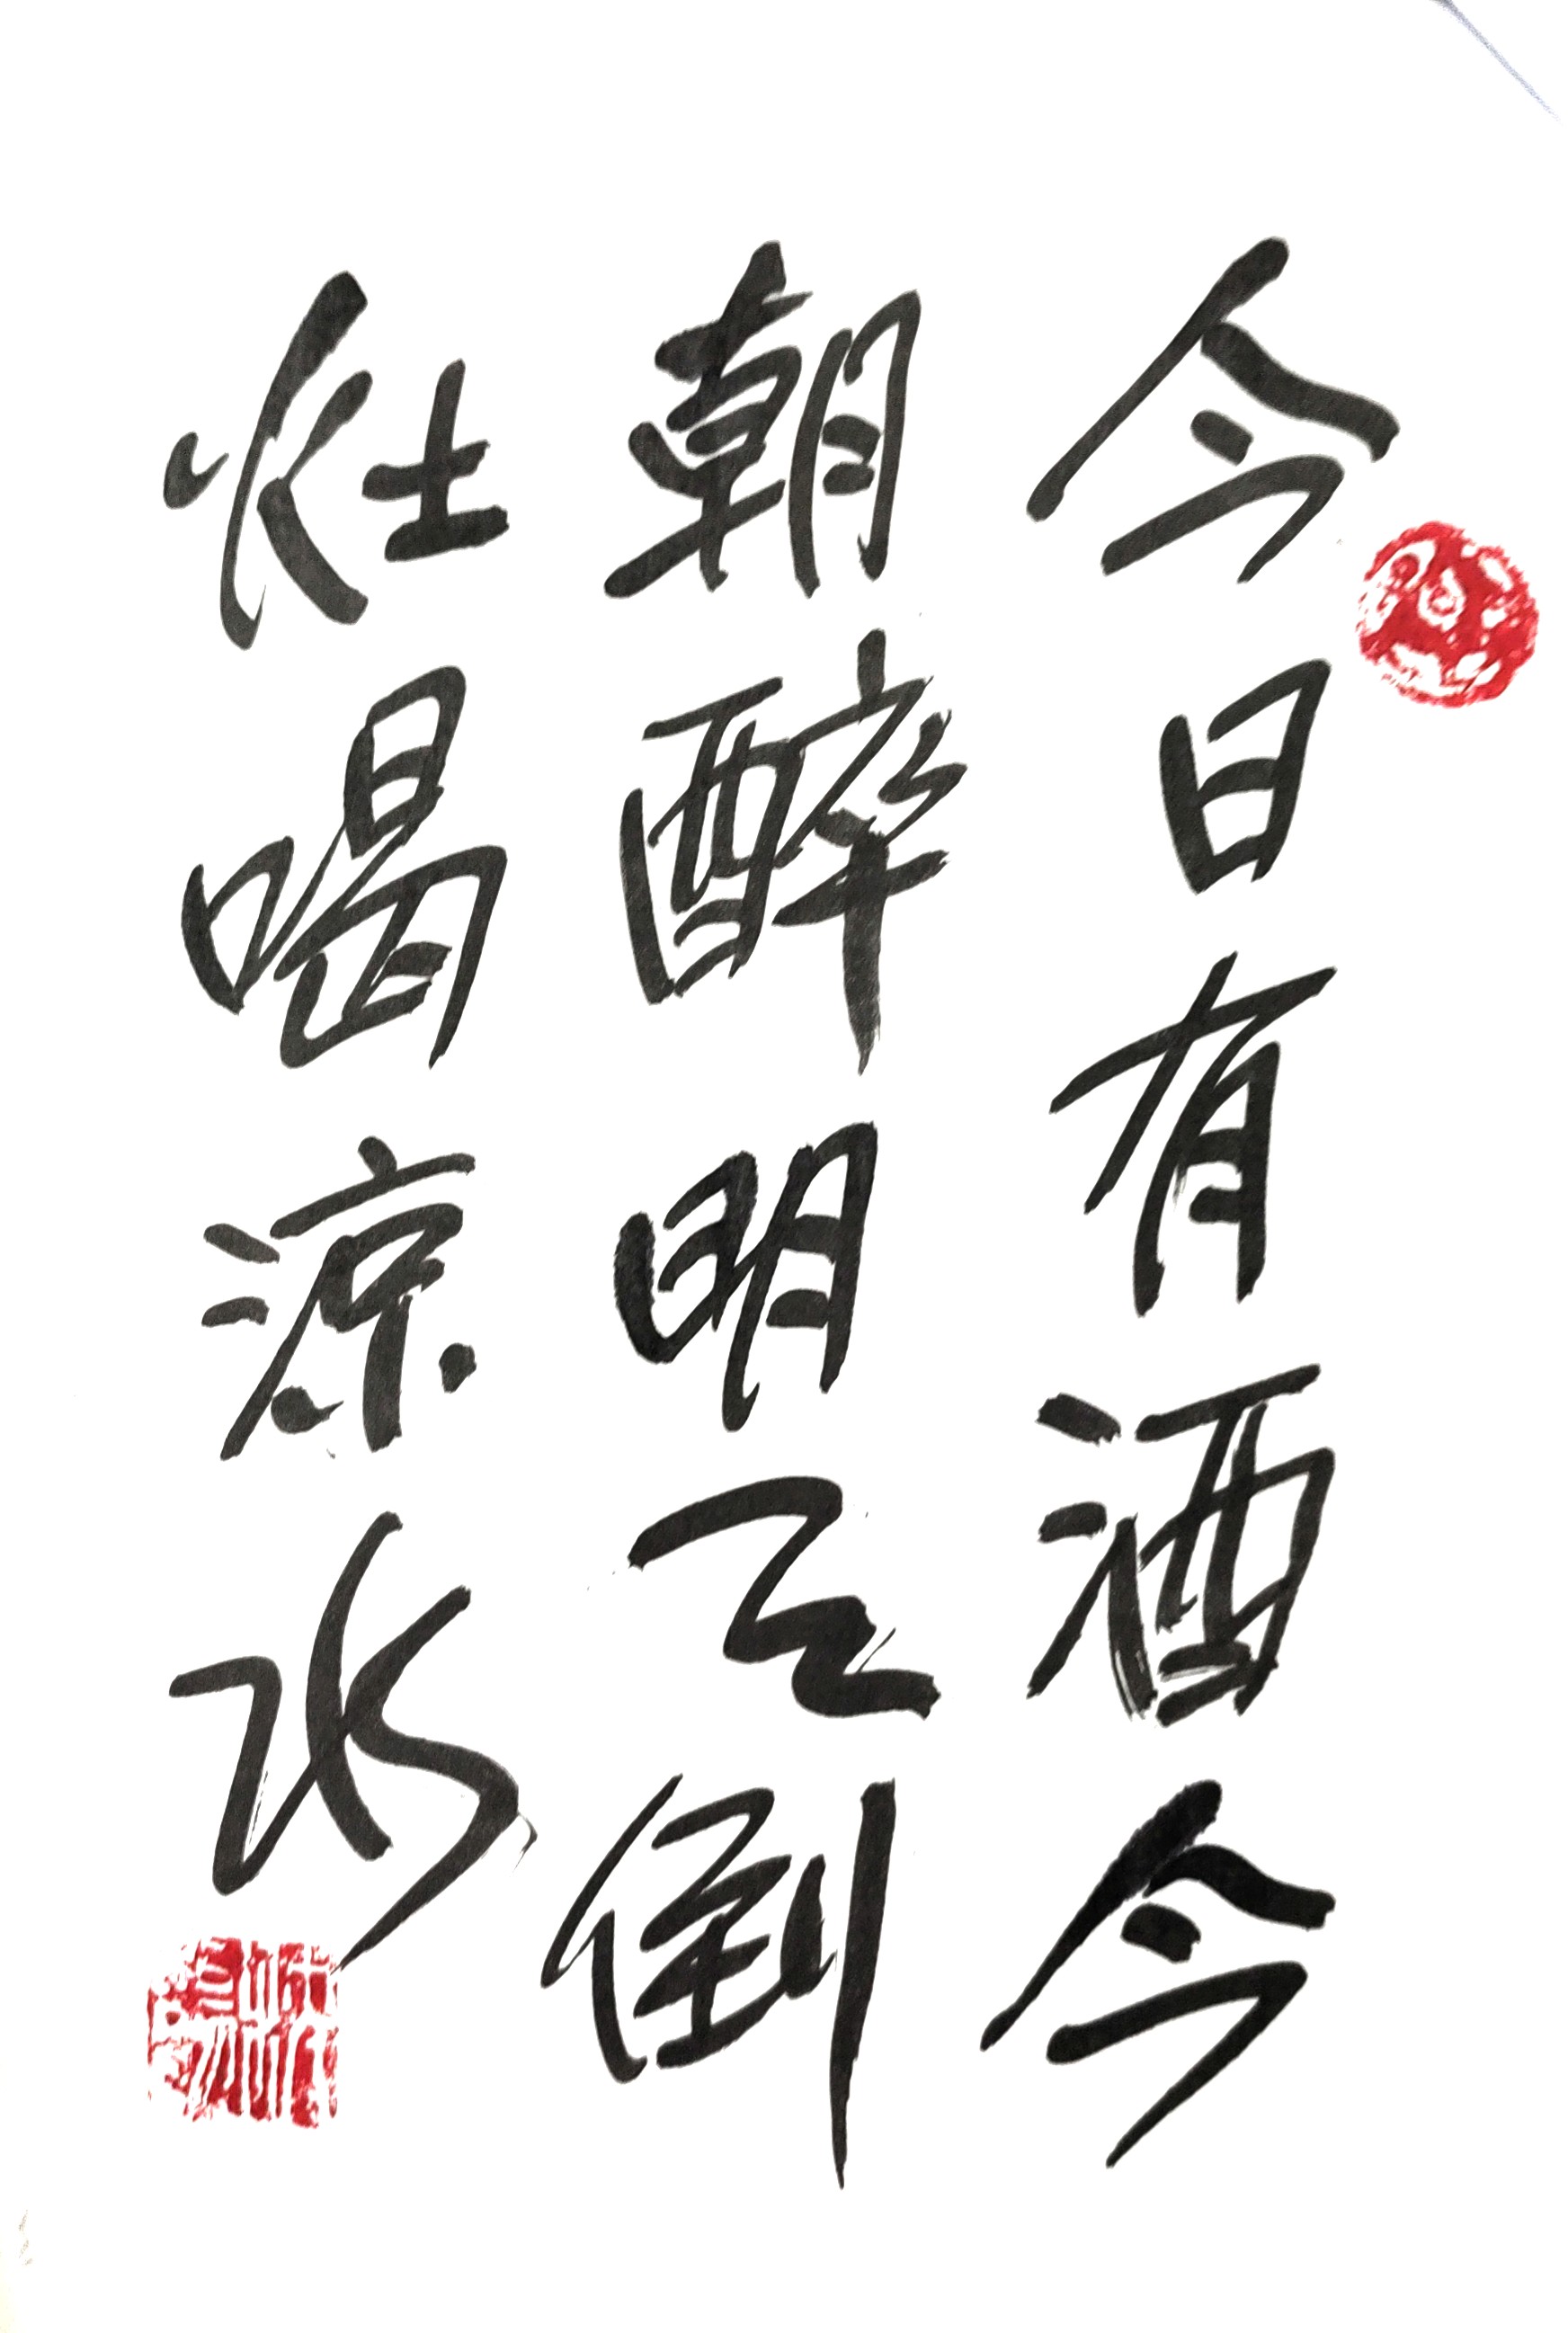 今日有酒今
朝醉明天倒
灶喝涼水